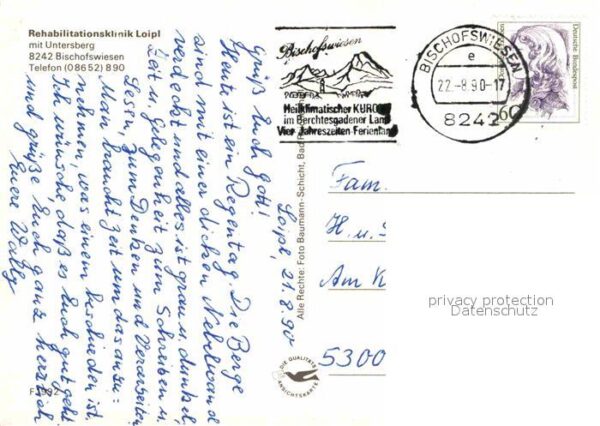 Rehabilitationsklinik Loipl
mit Untersberg
8242 Bischofswiesen
Telefon (08652) 890
Bischofswiesen
Heilklimatischer KURO
im Berchtesgadener Land
Vier-Jahreszeiten-Ferienland
BISCHOFSWIESEN
e
22.-8.90-17
8242
Deutsche Bundespost
60
Loipl, 21.8.90
Grüß Euch Gott!
Heute ist ein Regentag. Die Berge
sind mit einer dicken Nebelwand
verdeckt und alles ist grau u. dunkel,
Zeit, Gelegenheit zum Schreiben u.
Lesen, zum Denken und Verarbeiten
Man braucht Zeit um das anzu=
nehmen, was einem beschieden ist.
Ich wünsche, daß es Euch gut geht
und grüße Euch ganz herzlich
Eure Wally
Alle Rechte: Foto Baumann-Schicht, Bad
DIE QUALITÄTS
ANSICHTSKARTE
Fam.
H. u.
Am K
5300
privacy protection
Datenschutz